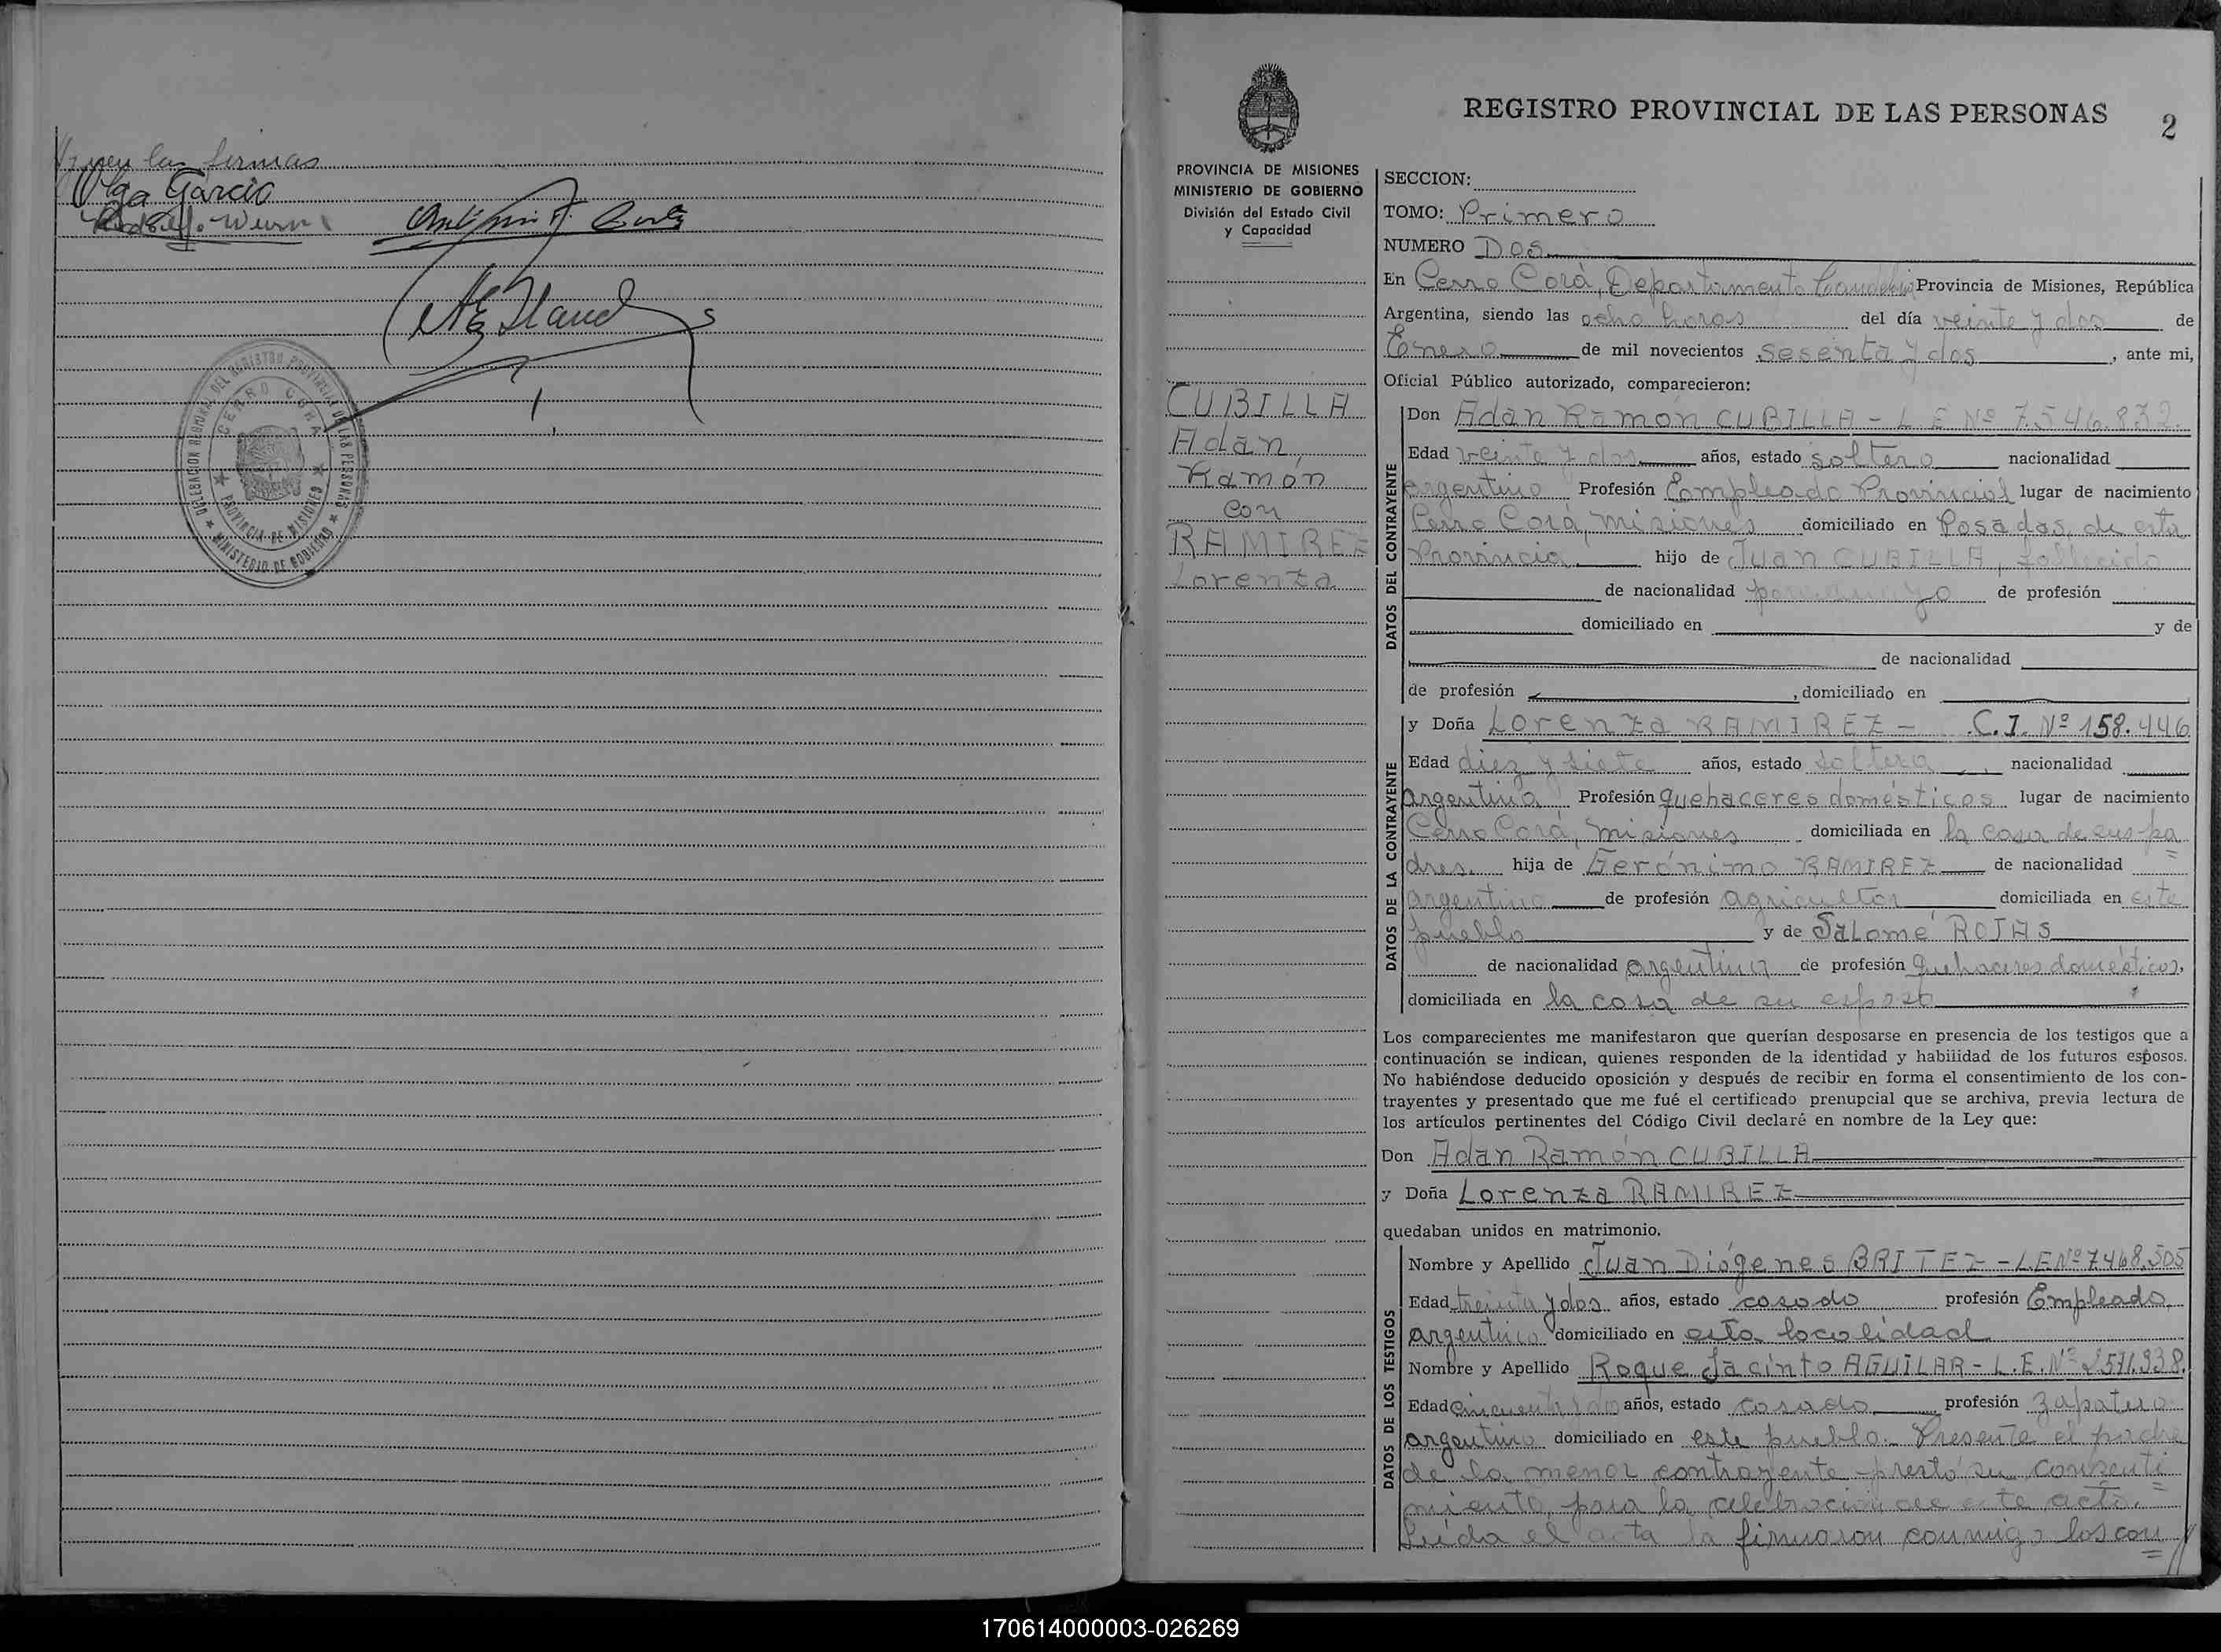 las firmas
Olga Garcia
DELEGACION REGIONAL DEL REGISTRO PROVINCIAL DE LAS PERSONAS
CERRO CORA
PROVINCIA DE MISIONES
MINISTERIO DE GOBIERNO
REGISTRO PROVINCIAL DE LAS PERSONAS
2
PROVINCIA DE MISIONES
MINISTERIO DE GOBIERNO
División del Estado Civil
y Capacidad
CUBILLA
Adan
Ramón
con
RAMIREZ
Lorenza
SECCION:
TOMO: Primero
NUMERO Dos
En Cerro Corá, Departamento Candelaria Provincia de Misiones, República
Argentina, siendo las ocho horas del día veinte y dos de
Enero de mil novecientos sesenta y dos, ante mi,
Oficial Público autorizado, comparecieron:
DATOS DEL CONTRAYENTE
Don Adan Ramón CUBILLA - L E Nº 7.546.832.
Edad veinte y dos años, estado soltero nacionalidad
argentino Profesión Empleado Provincial lugar de nacimiento
Cerro Corá, Misiones domiciliado en Posadas, de esta
Provincia. hijo de Juan CUBILLA, fallecido
de nacionalidad paraguayo de profesión
domiciliado en y de
de nacionalidad
de profesión , domiciliado en
DATOS DE LA CONTRAYENTE
y Doña Lorenza RAMIREZ - C.I. Nº 158.446
Edad diez y siete años, estado soltera nacionalidad
argentina Profesión quehaceres domésticos lugar de nacimiento
Cerro Corá, Misiones domiciliada en la casa de sus pa=
dres. hija de Gerónimo RAMIREZ de nacionalidad
argentino de profesión agricultor domiciliada en este
pueblo y de Salomé ROJAS
de nacionalidad argentina de profesión Quehaceres domésticos,
domiciliada en la casa de su esposo
Los comparecientes me manifestaron que querían desposarse en presencia de los testigos que a
continuación se indican, quienes responden de la identidad y habilidad de los futuros esposos.
No habiéndose deducido oposición y después de recibir en forma el consentimiento de los con-
trayentes y presentado que me fué el certificado prenupcial que se archiva, previa lectura de
los artículos pertinentes del Código Civil declaré en nombre de la Ley que:
Don Adan Ramón CUBILLA
y Doña Lorenza RAMIREZ
quedaban unidos en matrimonio.
DATOS DE LOS TESTIGOS
Nombre y Apellido Juan Diógenes BRITEZ - L.E Nº 7468.505
Edad treinta y dos años, estado casado profesión Empleado
argentino domiciliado en esta localidad
Nombre y Apellido Roque Jacinto AGUILAR - L.E. Nº
Edad cincuenta y dos años, estado casado profesión zapatero
argentino domiciliado en este pueblo. Presente el padre
de la menor contrayente prestó su consenti=
miento para la celebración de este acto.
Leída el acta la firmaron conmigo los con=//
170614000003-026269